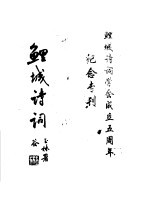 鲤城诗词学会成立五周年
纪念专刊
鲤城诗词